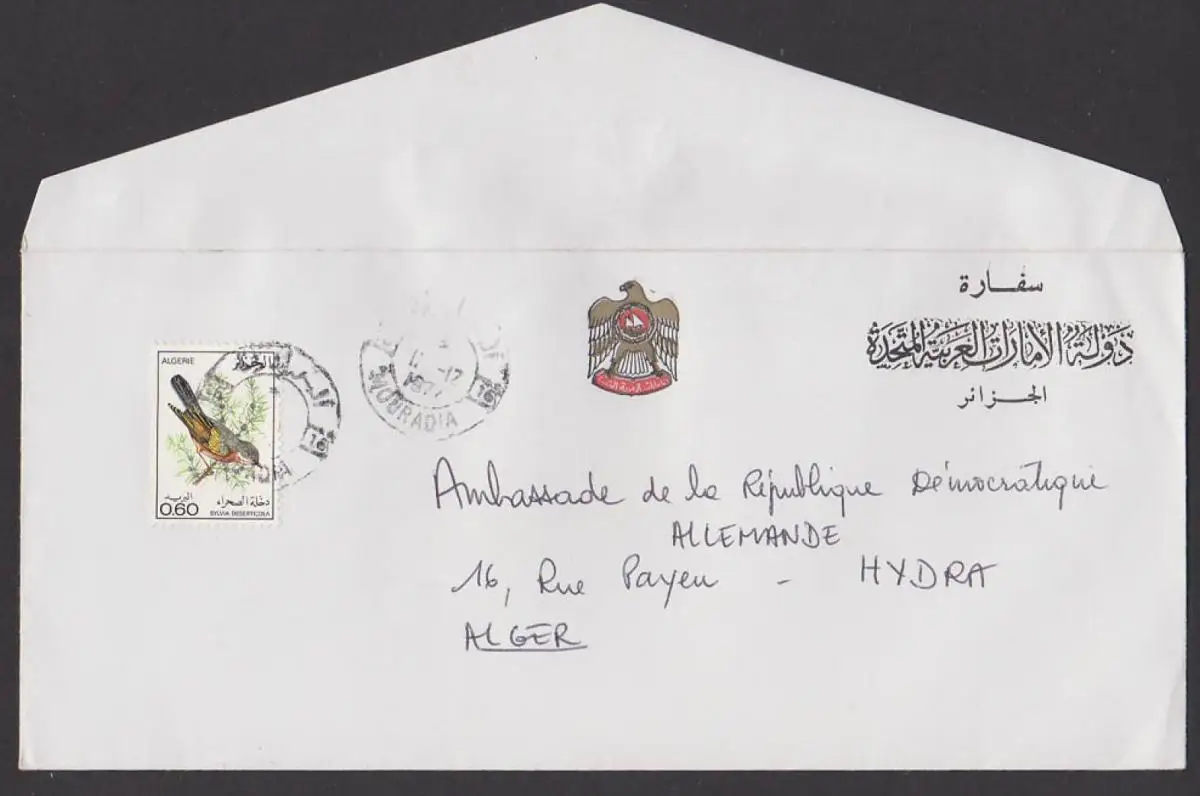 سفارة
دولة الإمارات العربية المتحدة
الجزائر
ALGERIE
الجزائر
البريد
دخلة الصحراء
0.60
SYLVIA DESERTICOLA
16
1977
16
MOURADIA
Ambassade de la République Démocratique
ALLEMANDE
16, Rue Payen - HYDRA
ALGER